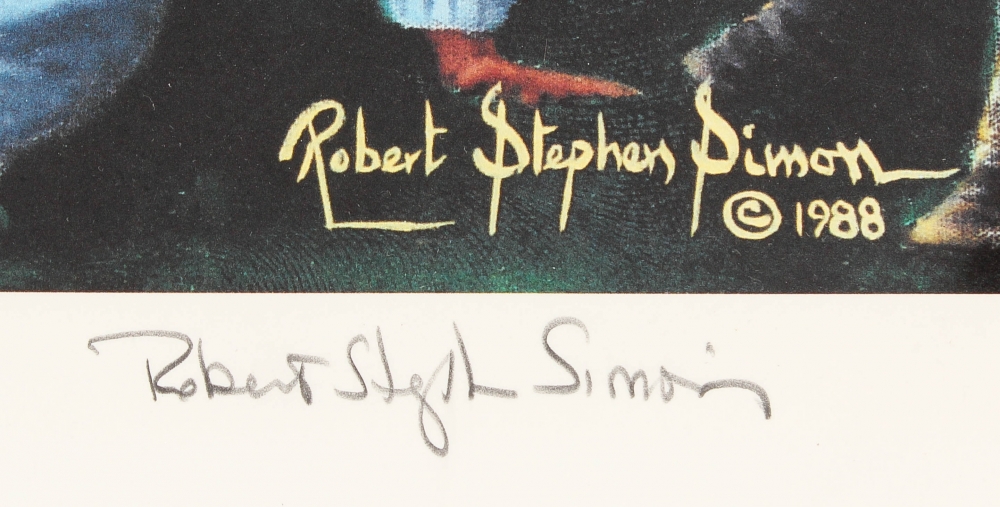 Robert Stephen Simon
© 1988
Robert Stephen Simon